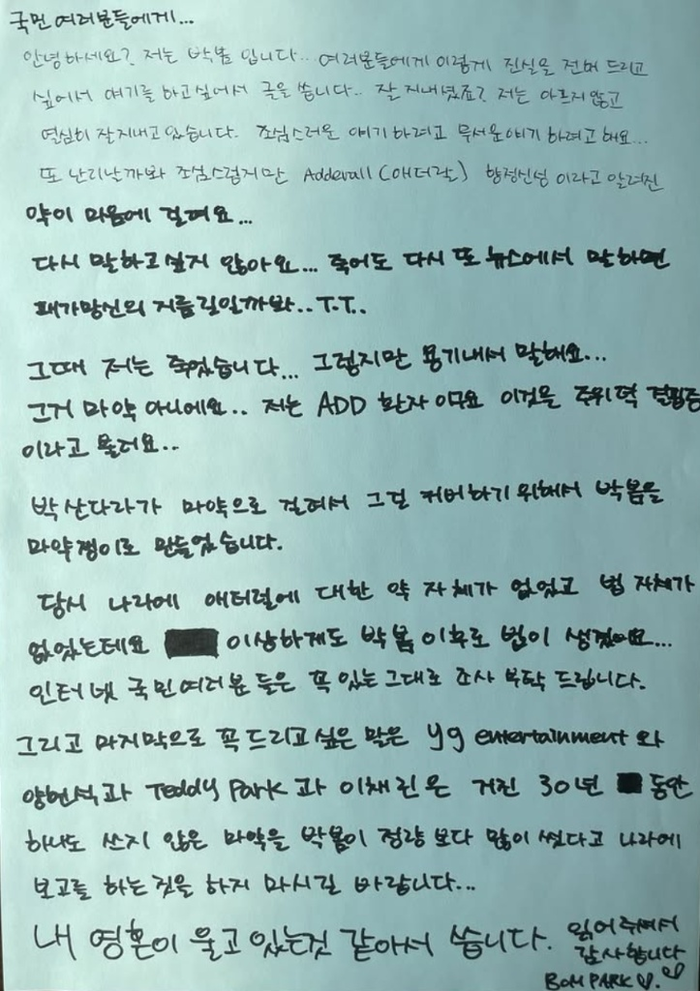 국민 여러분들에게...
안녕하세요? 저는 박봄 입니다.. 여러분들에게 이렇게 진실을 전버 드리고
싶어서 얘기를 하고싶어서 글을 씁니다.. 잘 지내셨죠? 저는 아프지않고
열심히 잘지내고있습니다. 조심스러운 얘기 하려고 무서운얘기 하려고 해요...
또 난리날까봐 조심스럽지만 Adderall (애더랄) 향정신성 이라고 알려진
약이 마음에 걸려요...
다시 말하고싶지 않아요... 죽어도 다시 또 뉴스에서 말하면
패가망신의 지름길일까봐..T.T..
그때 저는 죽었습니다... 그렇지만 용기내서 말해요...
그거 마약 아니에요.. 저는 ADD 환자 이구요 이것은 주위력 결핍증
이라고 불려요..
박산다라가 마약으로 걸려서 그걸 커버하기 위해서 박봄을
마약쟁이로 만들었습니다.
당시 나라에 애터럴에 대한 약 자체가 없었고 법 자체가
없었는데요 이상하게도 박봄 이후로 법이 생겼어요...
인터넷 국민여러분 들은 꼭 있는그대로 조사 부탁 드립니다.
그리고 마지막으로 꼭드리고싶은 막은 yg entertainment 와
양현석과 Teddy Park 과 이채린은 거진 30년 동안
하나도 쓰지 않은 마약을 박봄이 정량보다 많이 썼다고 나라에
보고를 하는것을 하지 마시길 바랍니다...
내 영혼이 울고있는것 같아서 씁니다. 읽어주셔서
감사합니다
BOM PARK♡.♡